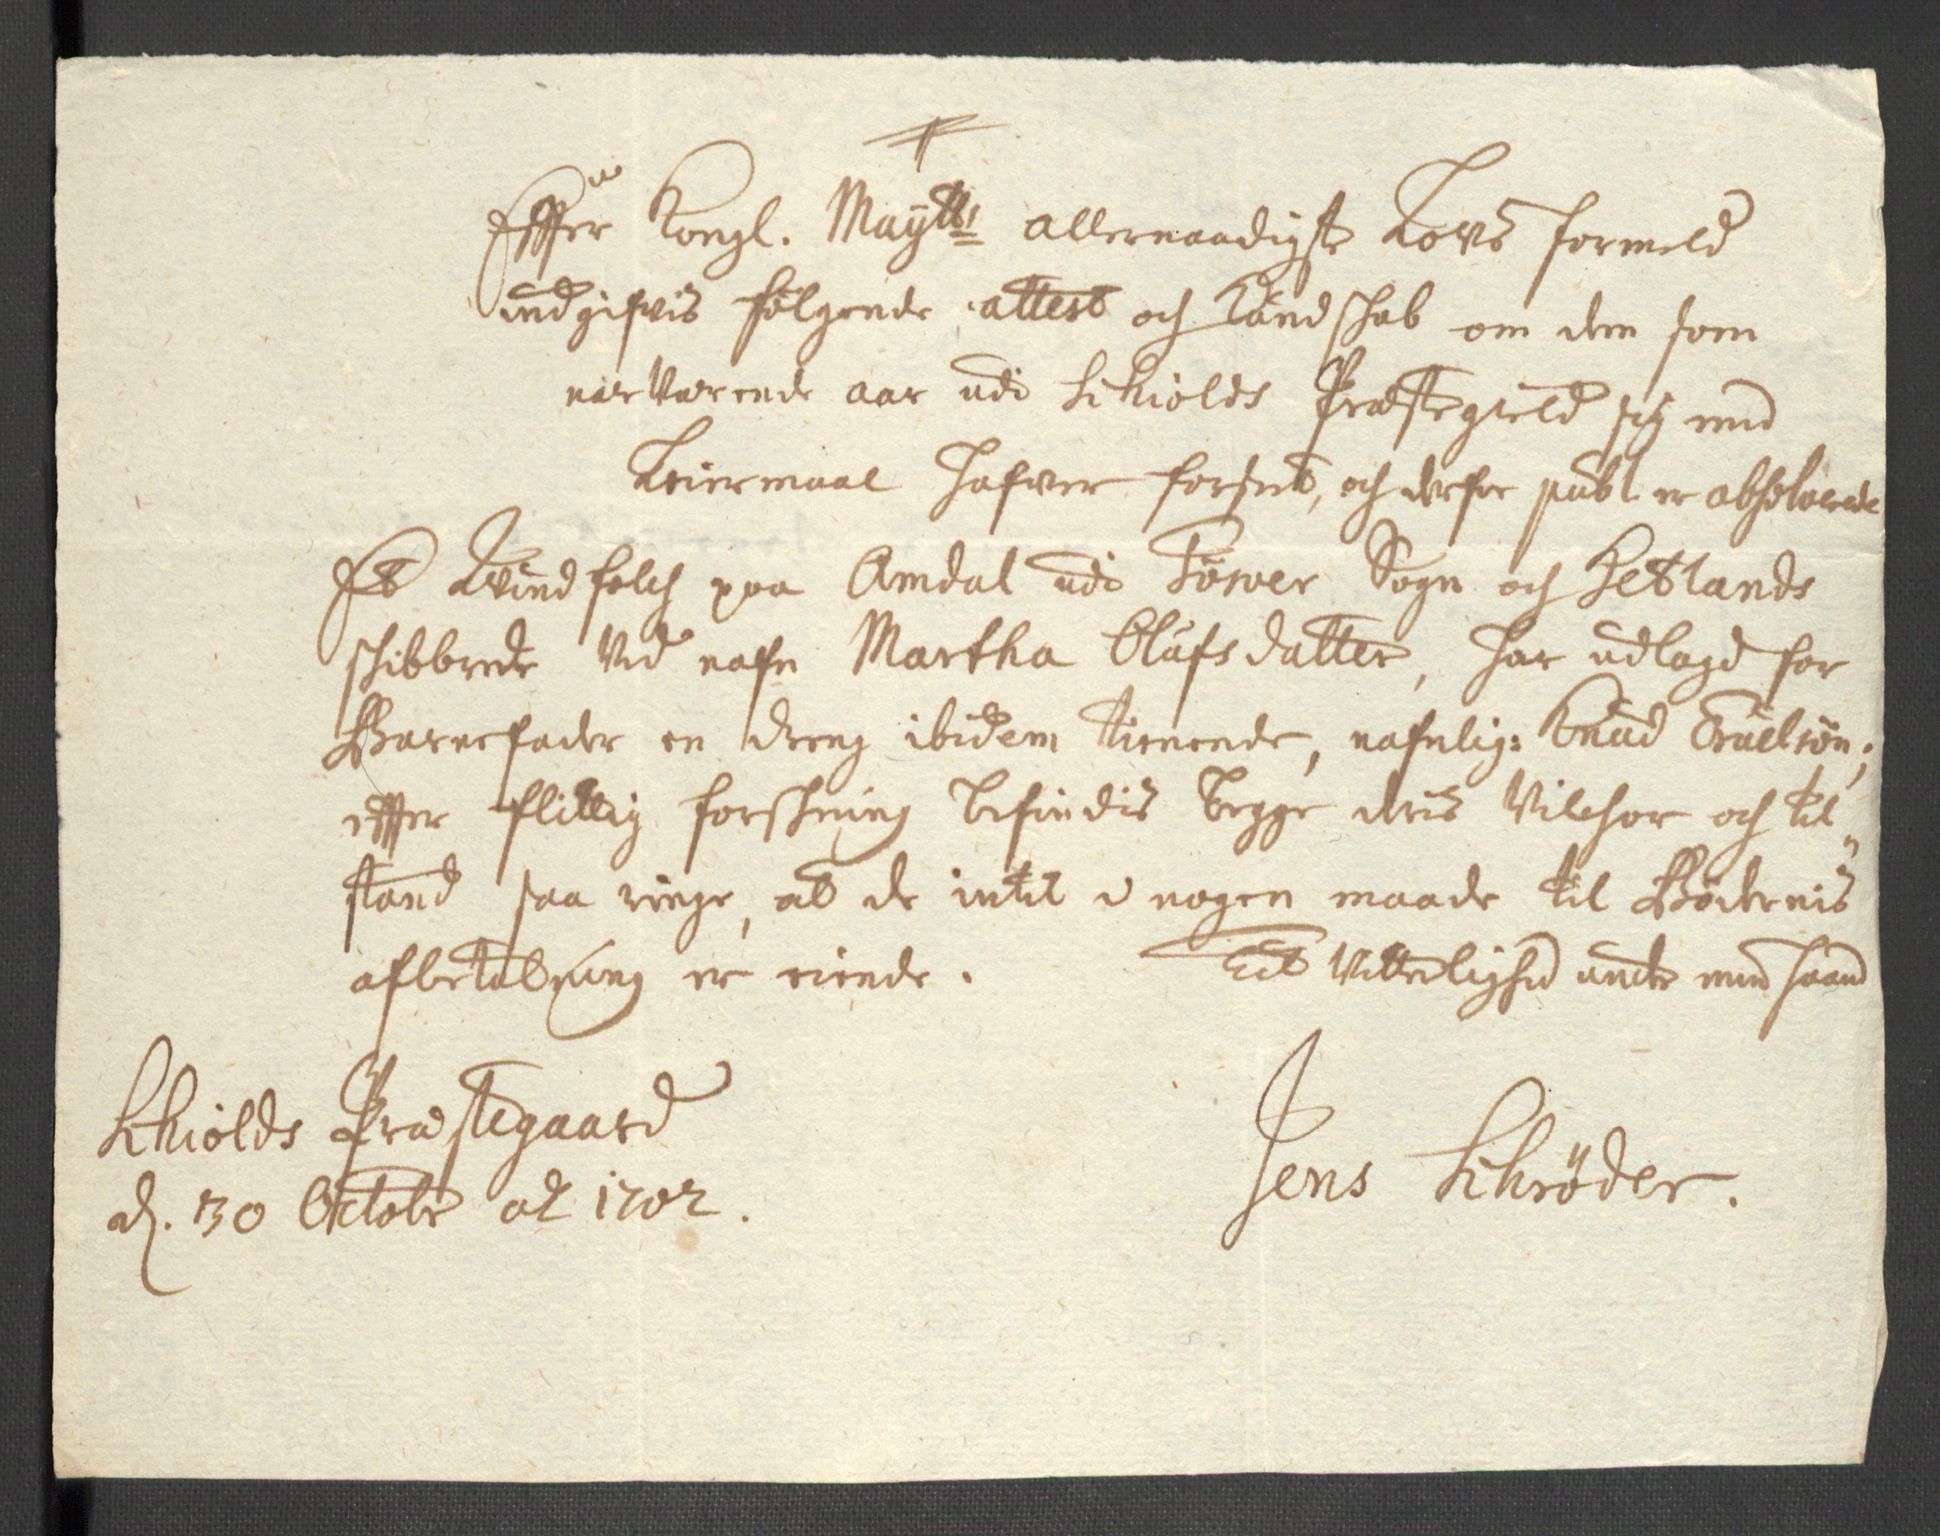 Effter Kongl. Maÿtts allernaadigste Lovs formeld
indgifvis følgende attest och Kundschab om dem som
nærværende aar udi Schiolds Præstegield sig med
Leiermaal hafver forseet, och derfor publ. er absolverede
Et Quindfolch paa Amdal udi Fosver Sogn och Hetlands
schibbrede ved nafn Martha Olufsdatter, har udlagd for
Barnefader en dreng ibidem tienende, nafnlig: Knud
effter flittig forschning befindis begge deris Vilchor och til„
stand saa ringe, at de intet i nogen maade til Bødernis
afbetalning er eiende. Til Vitterlighed under min haand
Schiolds Præstegaard
d. 30 Octobr a&#771; 1702.
Jens Schrøder.